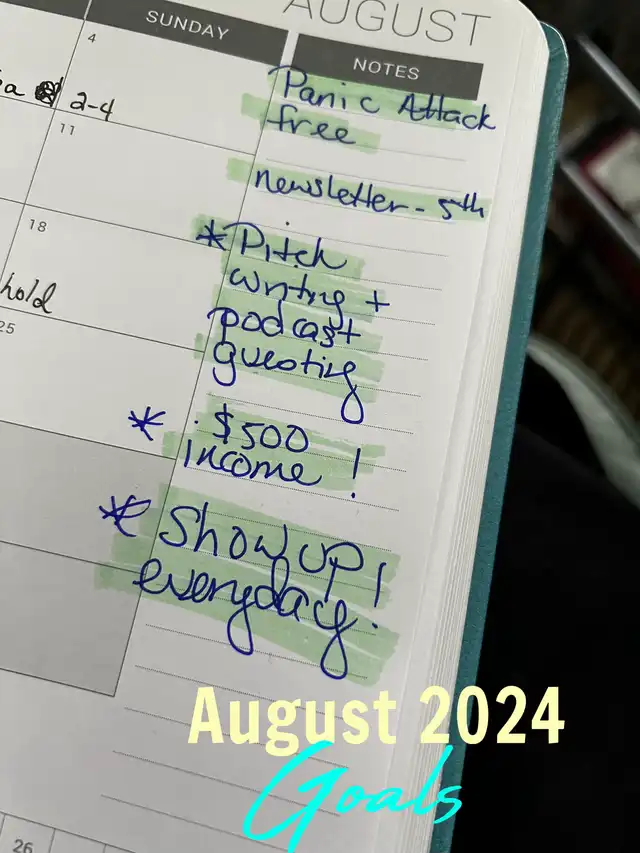 AUGUST
SUNDAY
NOTES
4
2-4
11
18
hold
25
26
Panic Attack
free
newsletter - 5th
* Pitch
writing +
podcast
guesting
* $500
income !
* Show up!
everyday.
August 2024
Goals